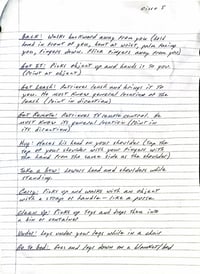 Disco 5
Back: Walks backward away from you (hold
hand in front of you, bent at waist, palm facing
you, fingers down. Flick fingers away from you)
Get It: Picks object up and hands to you.
(Point at object)
Get Leash: Retrieves leash and brings it to
you. He must know general location of the
leash (Point in direction)
Get Remote: Retrieves TV remote control. He
must know its general location (Point in
its direction)
Hug: Places his head on your shoulder (tap the
top of your shoulder with your fingers with
the hand from the same side as the shoulder)
Take a bow: Lowers head and shoulders while
standing.
Carry: Picks up and walks with an object
with a strap or handle - like a purse.
Clean Up: Picks up toys and drops them into
a bin or container
Under: Legs under your legs while in a chair
Go to bed: Goes and lays down on a blanket/bed